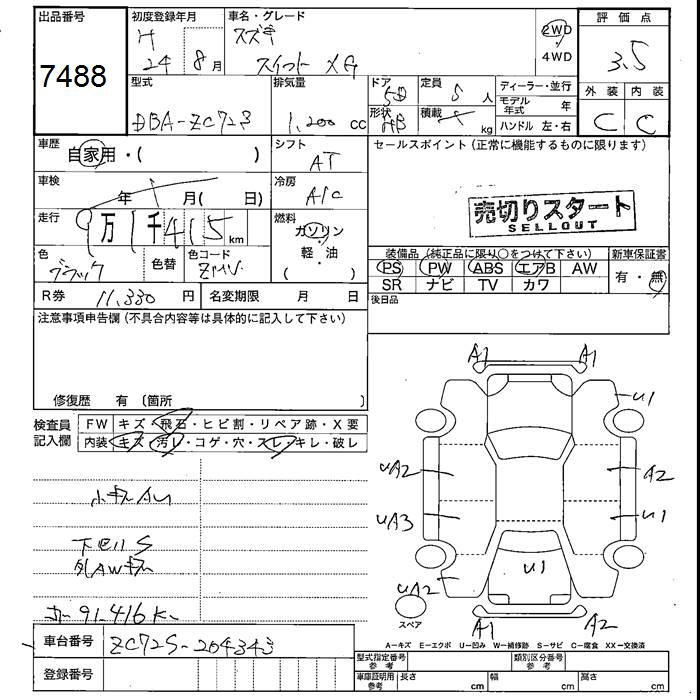 出品番号
7488
初度登録年月
H
24 8月
車名・グレード
スズキ
スイフト XG
2WD
4WD
評価点
3.5
外装 内装
C C
型式
DBA-ZC72S
排気量
1,200 cc
ドア
5D
形状
HB
定員
5 人
積載
kg
ディーラー・並行
モデル年式 年
ハンドル 左・右
車歴
自家用・( )
シフト
AT
車検
年 月( 日)
冷房
A/C
走行
9万1千415 km
燃料
ガソリン
軽・油
( )
色
ブラック
色替
色コード
ZMV
R券 11,330 円
名変期限 月 日
セールスポイント(正常に機能するものに限ります)
売切りスタート
SELLOUT
装備品(純正品に限り○をつけて下さい)
PS PW ABS エアB AW
SR ナビ TV カワ
新車保証書
有・無
後日品
注意事項申告欄(不具合内容等は具体的に記入して下さい)
修復歴 有〔箇所 〕
検査員記入欄
FW キズ・飛石・ヒビ割・リペア跡・X要
内装 キズ・汚レ・コゲ・穴・スレ・キレ・破レ
小キズAU
下回りS
外AWキズ
91.416K
A1 A1
U1
UA2 A2
UA3 U1
U1
UA2
スペア
A1 A2
A-キズ E-エクボ U-凹み W-補修跡 S-サビ C-腐食 XX-交換済
車台番号 ZC72S-204343
登録番号
型式指定番号 参考
類別区分番号 参考
車庫証明用 参考
長さ cm
幅 cm
高さ cm